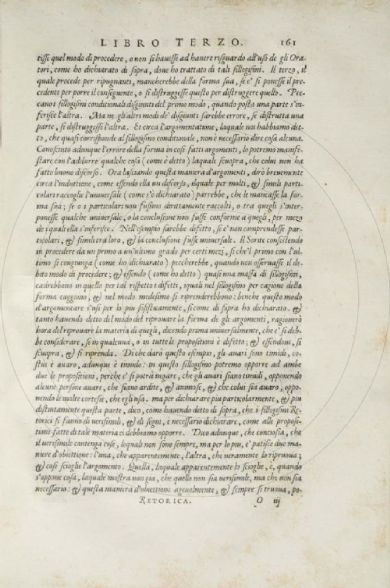 LIBRO TERZO. 161
tisse quel modo di procedere, o non si hauesse ad hauere risguardo all'uso de gli Ora-
tori, come ho dichiarato di sopra, doue ho trattato di tali sillogismi. Il terzo, il
quale procede per ripugnanti, mancherebbe della forma sua, se e' si ponesse il pre-
cedente per porre il conseguente, o si distruggesse questo per distruggere quello. Pec-
cano i sillogismi conditionali disgiunti del primo modo, quando posto una parte s'in-
ferisce l'altra. Ma ne gli altri modi de' disgiunti sarebbe errore, se distrutta una
parte, si distruggesse l'altra. Et circa l'argumentatione, laquale noi habbiamo det-
to, che quasi corrisponde al sillogismo conditionale, non è necessario dire cosa alcuna.
Conosciuto adunque l'errore della forma in così fatti argomenti, lo potremo manife-
stare con l'addurre qualche cosa (come è detto) laquale scuopra, che colui non ha
fatto buono discorso. Ora lasciando questa maniera d'argomenti, dirò breuemente
circa l'induttione, come essendo ella un discorso, ilquale per molti, & simili parti-
colari raccoglie l'uniuersale (come s'è dichiarato) parrebbe, che le mancasse la for-
ma sua; se o i particolari non fussino drittamente raccolti, o tra quegli s'inter-
ponesse qualche uniuersale, o la conclusione non fusse conforme a quegli, per mezo
de i quali ella s'inferisce. Nell'esempio sarebbe difetto, se e' non comprendesse par-
ticolari, & simili tra loro, & la conclusione fusse uniuersale. Il Sorite consistendo
in procedere da un primo a un'ultimo grado per certi mezi, sì che'l primo con l'ul-
timo si congiunga (come ho dichiarato) peccherebbe, quando non osseruasse il de-
bito modo di procedere; & essendo (come ho detto) quasi una massa di sillogismi,
caderebbono in quello per tal rispetto i difetti, iquali nel sillogismo per cagione della
forma caggiono, & nel modo medesimo si riprenderebbono: benche questo modo
d'argumentare s'usi per lo piu fallacemente, sì come di sopra ho dichiarato. &
tanto hauendo detto del modo del riprouare la forma de gli argomenti, ragionerò
hora del riprouare la materia di quegli, dicendo prima uniuersalmente, che e' si deb-
be considerare, se in qualcuna, o in tutte le propositioni è difetto; & essendoui, si
scuopra, & si riprenda. Di che darò questo esempio, gli auari sono timidi, co-
stui è auaro, adunque è timido: in questo sillogismo potremo opporre ad ambe
due le propositioni, perche e' si potrà negare, che gli auari siano timidi, opponendo
alcune persone auare, che siano ardite, & animose, & che colui sia auaro, oppo-
nendo le molte cortesie, che egli usa. ma per dichiarare piu particolarmente, & piu
distintamente questa parte, dico, come hauendo detto di sopra, che i sillogismi Re-
torici si fanno di uerisimili, & di segni, è necessario dichiarare, come alle propo-
sitioni fatte di tale materia ci debbiamo opporre. Dico adunque, che conciosia, che
il uerisimile contenga cose, lequali non sono sempre, ma per lo piu, e' patisce due ma-
niere d'obiettione: l'una, che apparentemente, l'altra, che ueramente lo ripruoua;
& così scioglie l'argomento. Quella, laquale apparentemente lo scioglie, è, quando
s'oppone cosa, laquale mostra non gia, che quello non sia uerisimile, ma che non sia
necessario: & questa maniera d'obiettione ageuolmente, & sempre si truoua, po-
RETORICA. O iij